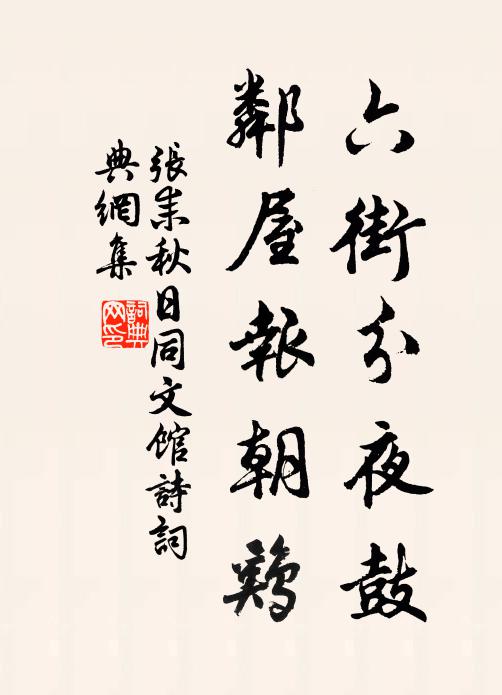 六街分夜鼓
鄰屋報朝鷄
張耒秋日同文館詩詞
典網集
詞典
网印